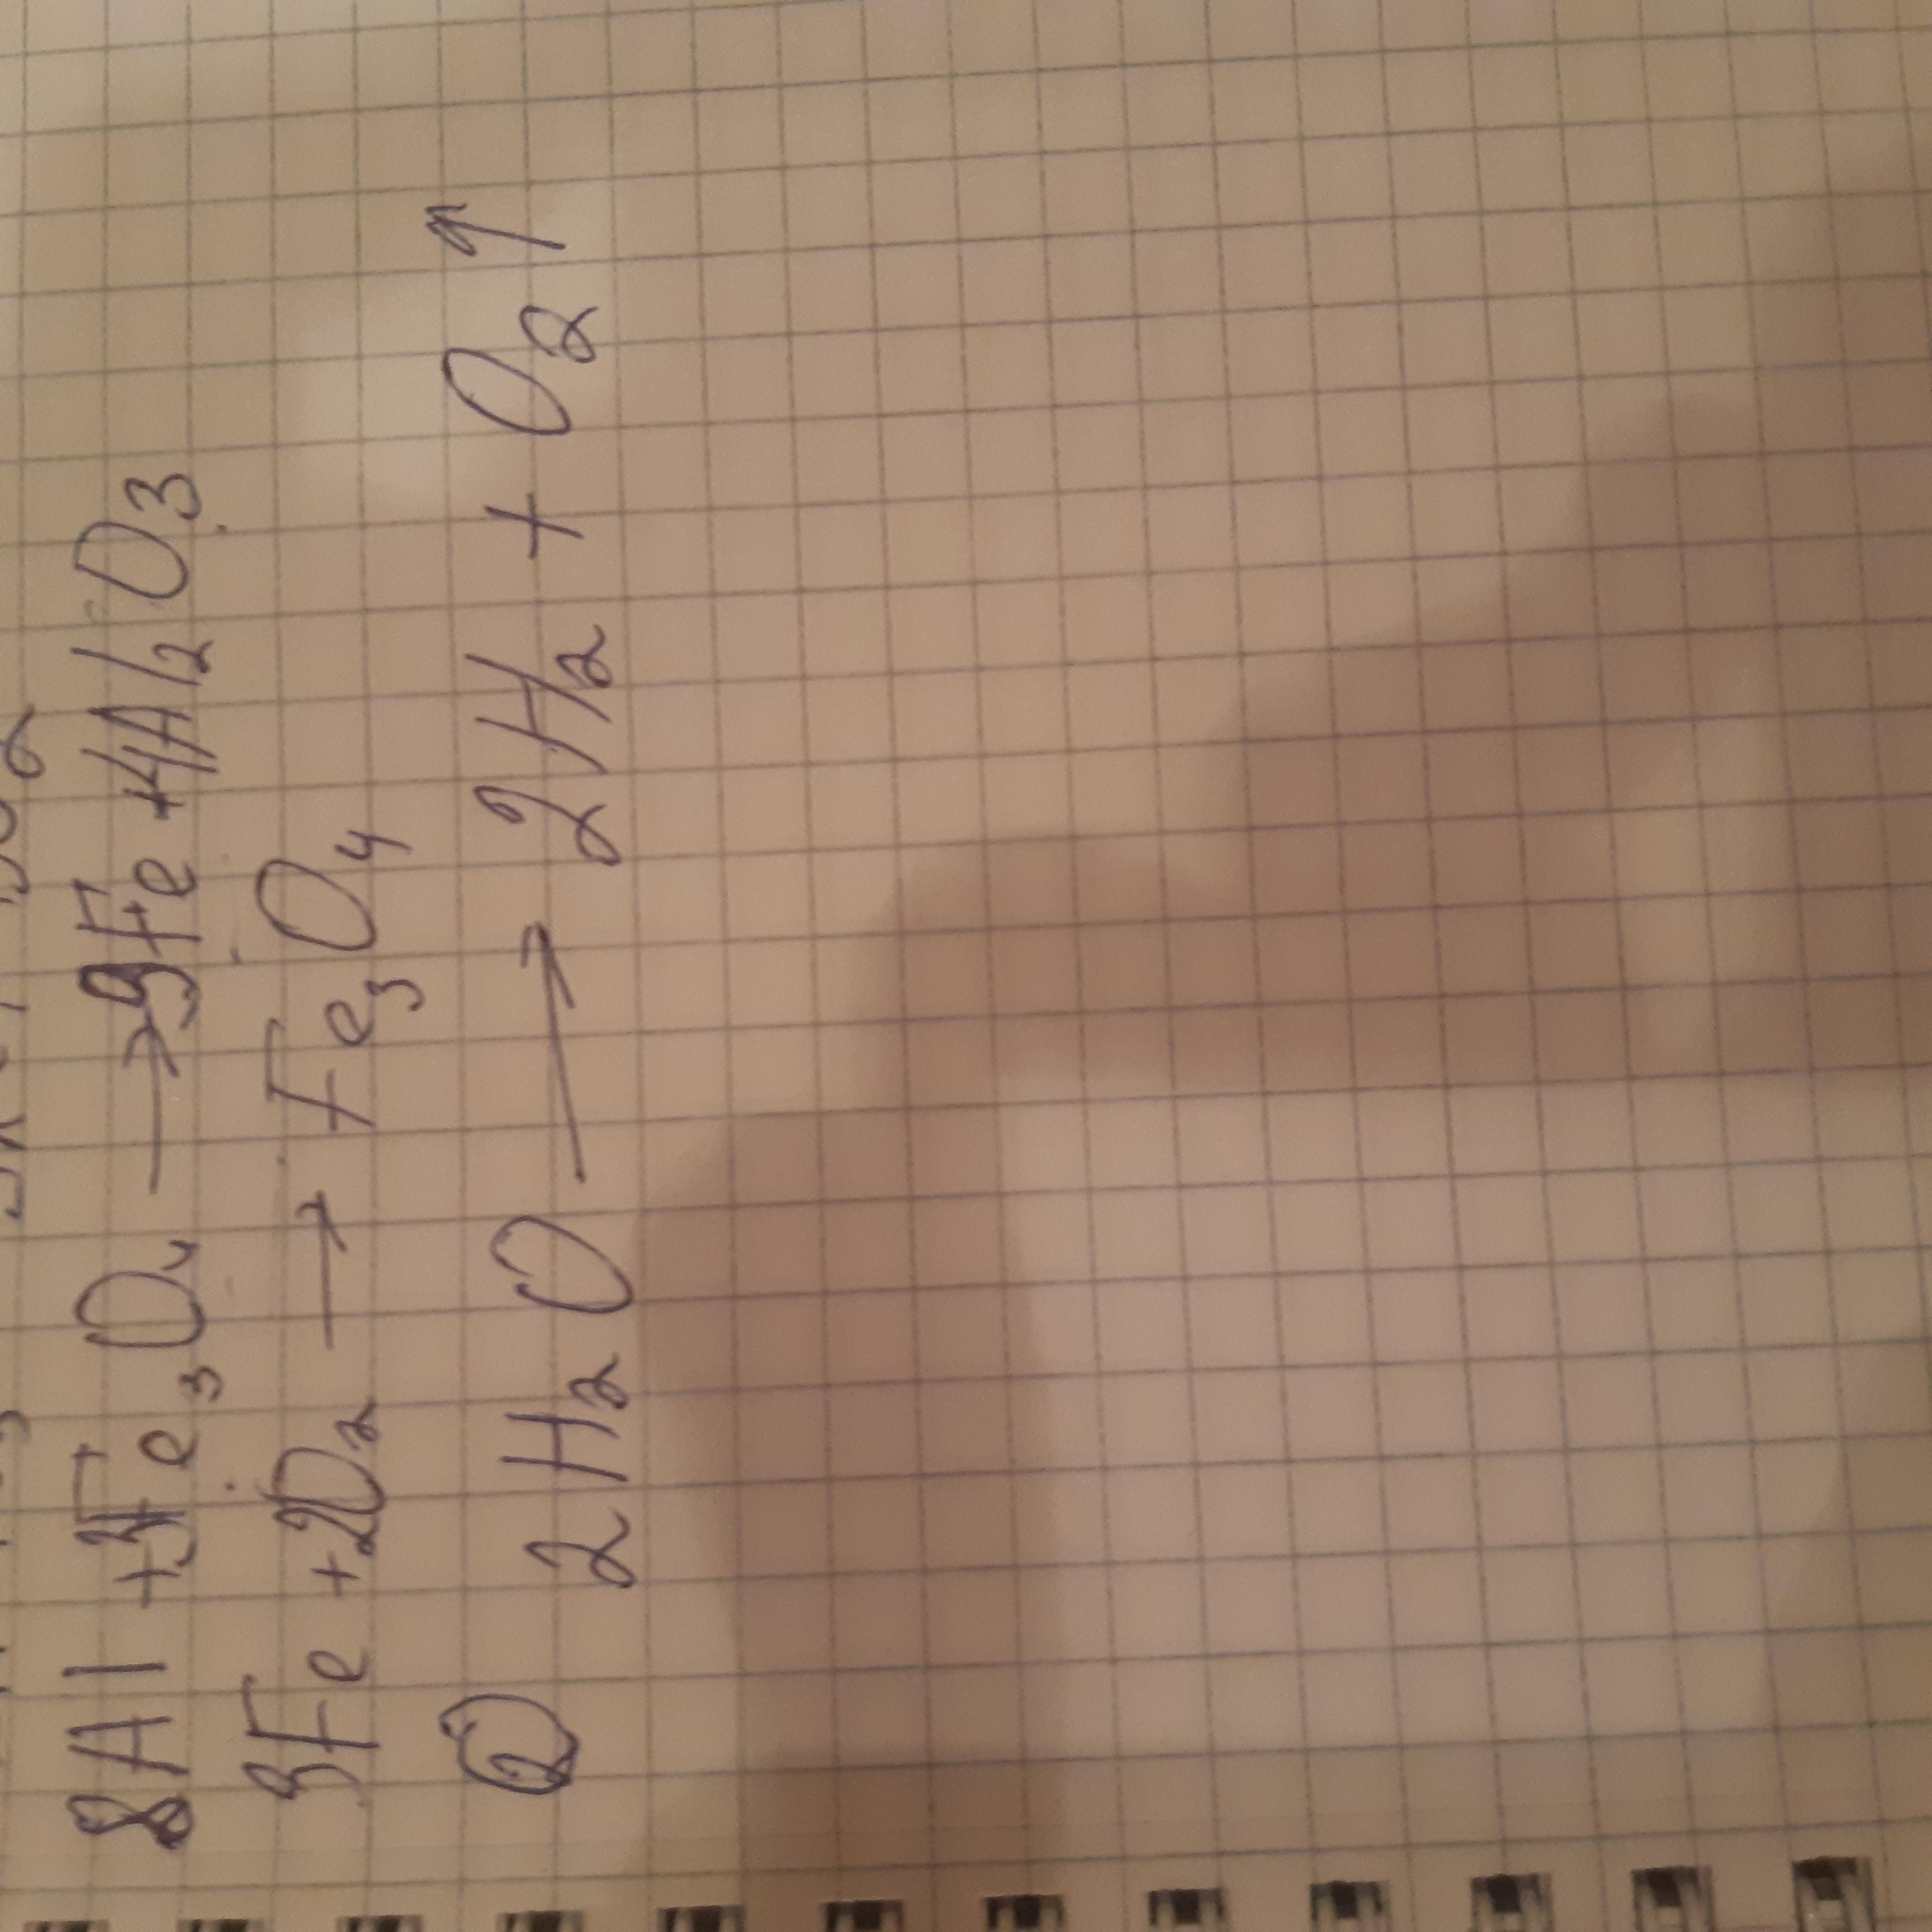 8Al + 3Fe₃O₄ → 9Fe + 4Al₂O₃
3Fe + 2O₂ → Fe₃O₄
② 2H₂O → 2H₂ + O₂ ↑